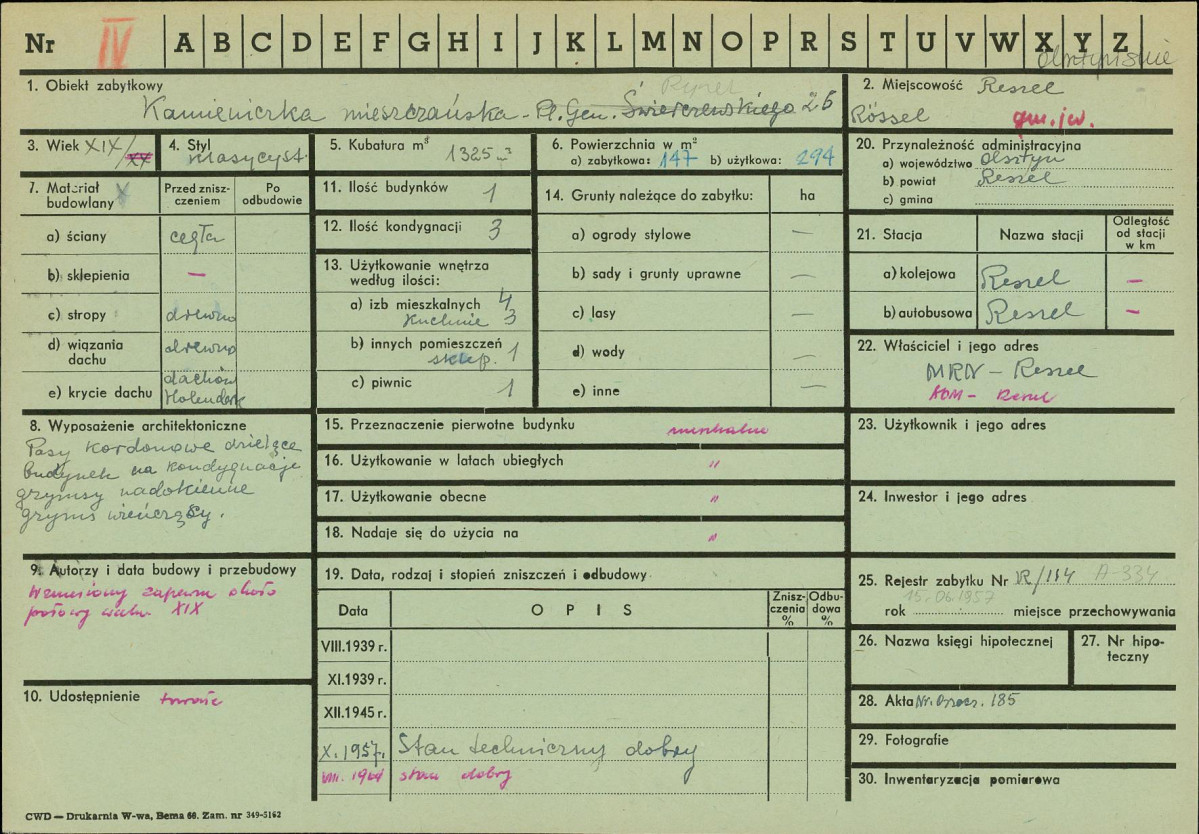 Nr IV A B C D E F G H I J K L M N O P R S T U V W X Y Z
olsztyńskie
1. Obiekt zabytkowy
Rynek
Kamieniczka mieszczańska - Pl. Gen. Świerczewskiego 26
2. Miejscowość Reszel
Rössel gm. jw.
3. Wiek XIX/XX
4. Styl
klasycyst.
5. Kubatura m³ 1325 m³
6. Powierzchnia w m²
a) zabytkowa: 147 b) użytkowa: 294
20. Przynależność administracyjna
a) województwo Olsztyn
b) powiat Reszel
c) gmina
7. Materiał budowlany
Przed zniszczeniem
Po odbudowie
a) ściany cegła
b) sklepienia —
c) stropy drewno
d) wiązania dachu drewno
e) krycie dachu dachów. Holender.
11. Ilość budynków 1
12. Ilość kondygnacji 3
13. Użytkowanie wnętrza
według ilości:
a) izb mieszkalnych 4
kuchnie 3
b) innych pomieszczeń
sklep. 1
c) piwnic 1
14. Grunty należące do zabytku: ha
a) ogrody stylowe —
b) sady i grunty uprawne —
c) lasy —
d) wody —
e) inne —
21. Stacja Nazwa stacji Odległość od stacji w km
a) kolejowa Reszel —
b) autobusowa Reszel —
22. Właściciel i jego adres
MRN - Reszel
ADM - Reszel
8. Wyposażenie architektoniczne
Pasy kordonowe dzielące
budynek na kondygnacje
grzymsy nadokienne
gzyms wieńczący.
15. Przeznaczenie pierwotne budynku mieszkalne
16. Użytkowanie w latach ubiegłych "
17. Użytkowanie obecne "
18. Nadaje się do użycia na "
23. Użytkownik i jego adres
24. Inwestor i jego adres
9. Autorzy i data budowy i przebudowy
Wzniesiony zapewne około
połowy wieku XIX
10. Udostępnienie
19. Data, rodzaj i stopień zniszczeń i odbudowy
Data OPIS Zniszczenia % Odbudowa %
VIII.1939 r.
XI.1939 r.
XII.1945 r.
X. 1957. Stan techniczny dobry
stan dobry
25. Rejestr zabytku Nr R/114 A-334
15.06.1957
rok miejsce przechowywania
26. Nazwa księgi hipotecznej
27. Nr hipoteczny
28. Akta 185
29. Fotografie
30. Inwentaryzacja pomiarowa
CWD — Drukarnia W-wa, Bema 66. Zam. nr 349-5162